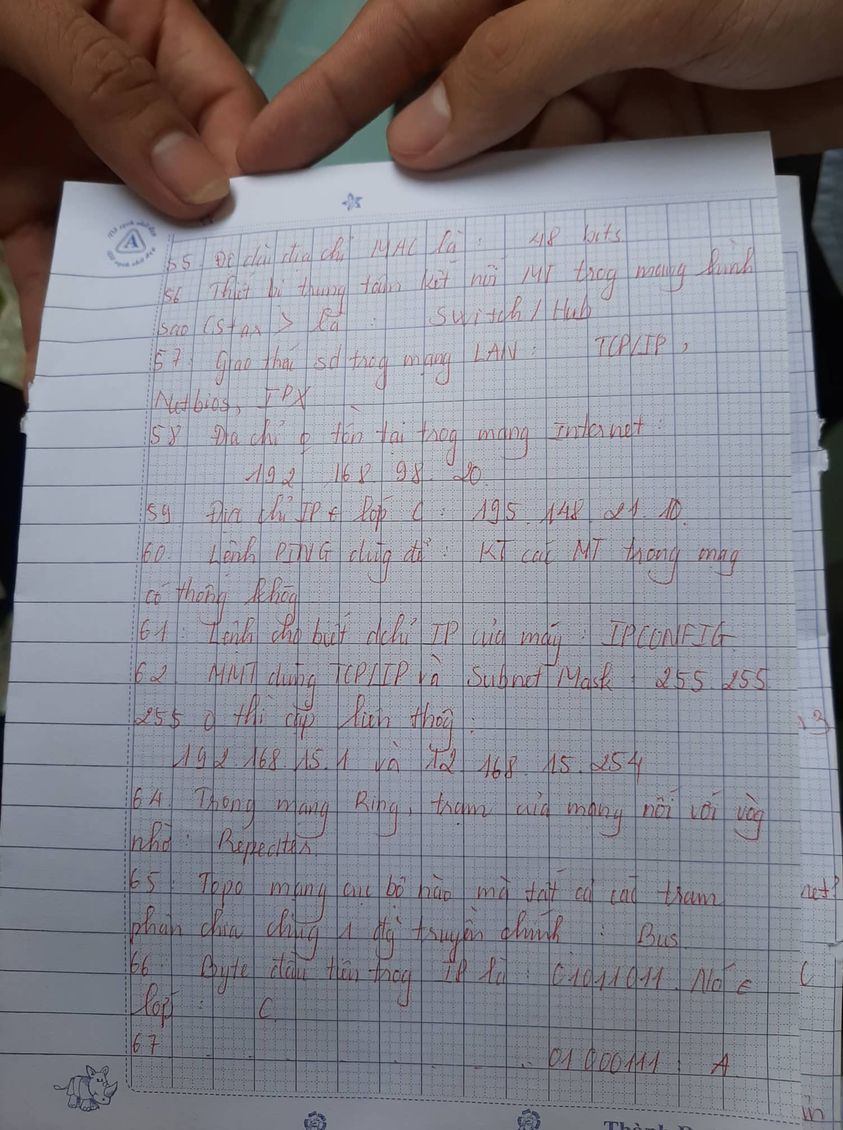 55. Độ dài địa chỉ MAC là : 48 bits
56. Thiết bị trung tâm kết nối MT trog mạng hình
sao (Star> là : Switch / Hub
57. Giao thức sd trog mạng LAN : TCP/IP,
Netbios, IPX
58 Địa chỉ o tồn tại trog mạng Internet :
192 . 168 . 98 . 20.
59 Địa chỉ IP ∈ lớp C : 195 . 148 . 21 . 10.
60. Lệnh PING dùg để : KT các MT trong mạg
có thông khôg
61 : Lệnh cho biết đchỉ IP của máy : IPCONFIG.
62 MMT dùng TCP/IP và Subnet Mask : 255.255.
255 0 thì cặp liên thôg :
192.168.15.1 và 192.168.15.254
64. Trong mạng Ring, trạm của mạng nối với vòg
nhờ : Repeater.
65 : Topo mạng cục bộ nào mà tất cả các trạm
phân chia chug 1 đg truyền chính : Bus.
66 Byte đầu tiên trog IP là : 01011011. Nó ∈
lớp : C
67 . . . . . . 01000111 : A
13
net?
C
A